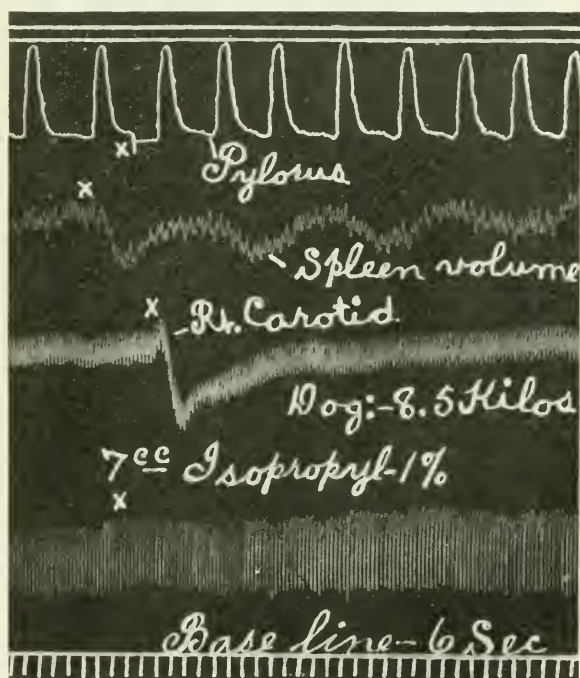 x
Pylorus
x
Spleen volume
x
Rt. Carotid.
Dog:-8.5 Kilos
7cc Isopropyl-1%
x
Base line-6 Sec